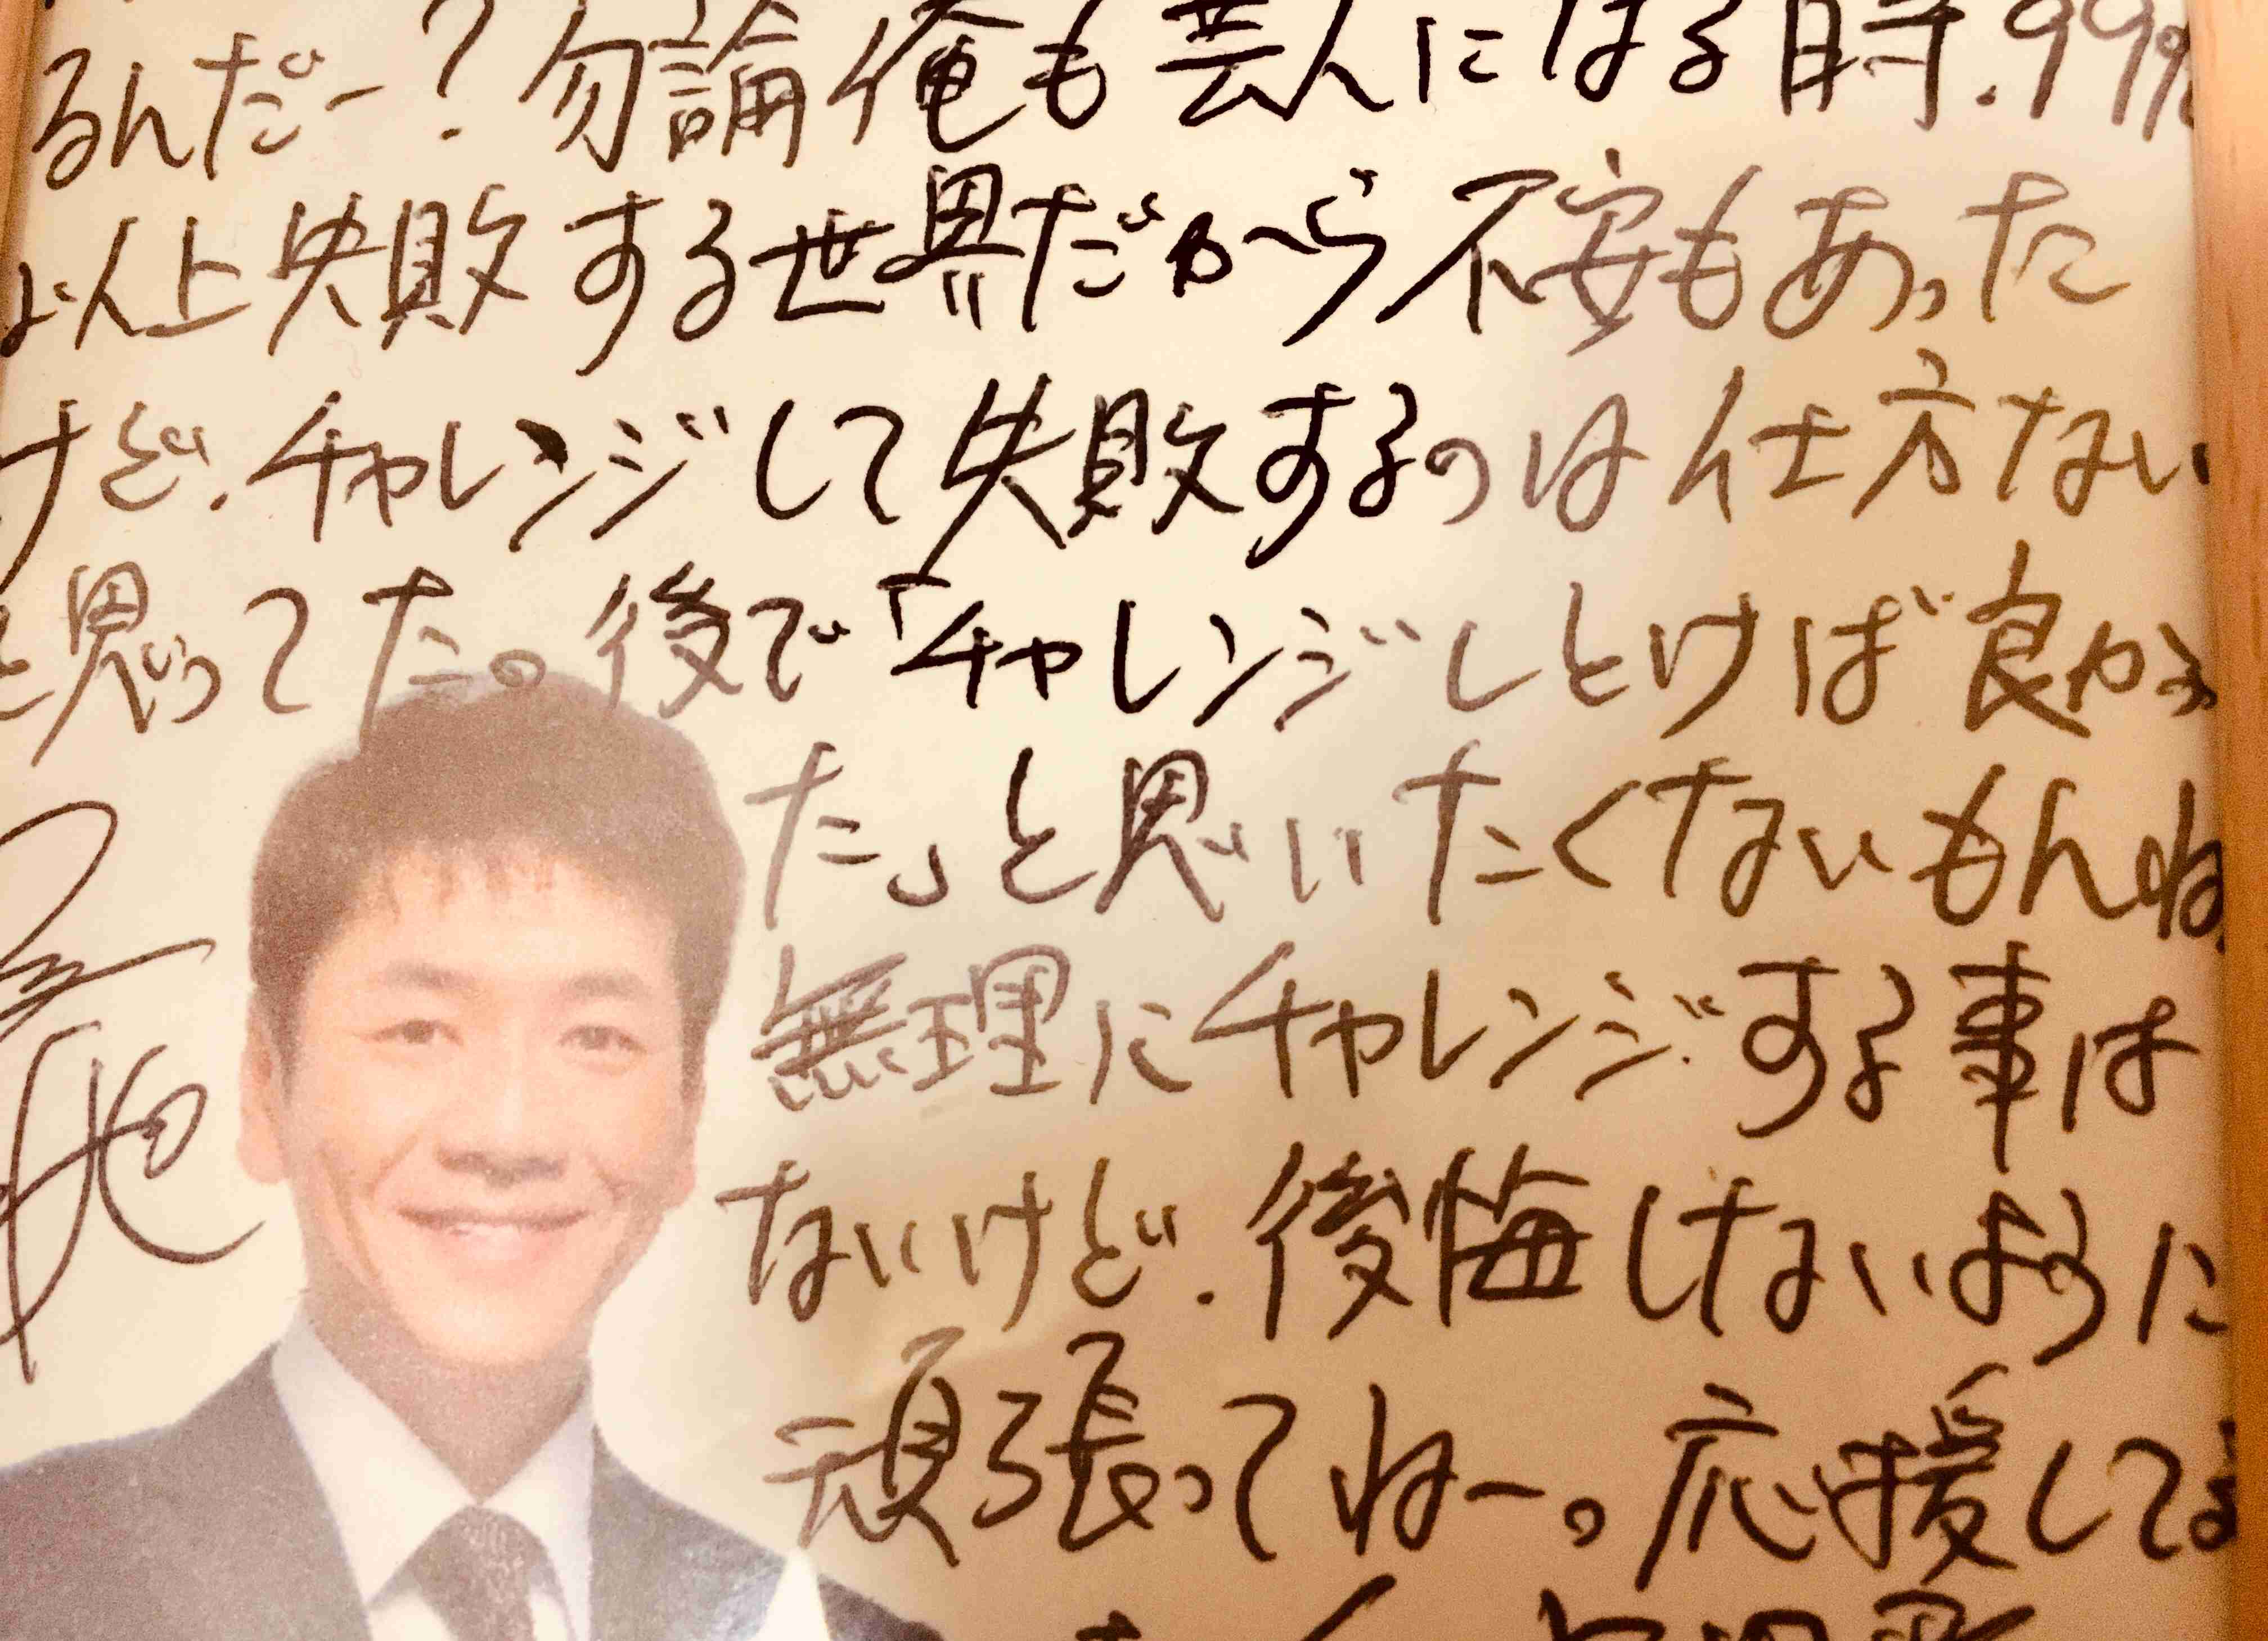 るんだー?勿論俺も芸人になる時、99%
以上失敗する世界だから不安もあった
けど、チャレンジして失敗するのは仕方ない
と思ってた。後で「チャレンジしとけば良かっ
た」と思いたくないもんね
無理にチャレンジする事は
ないけど、後悔しないように
頑張ってねー。応援してる